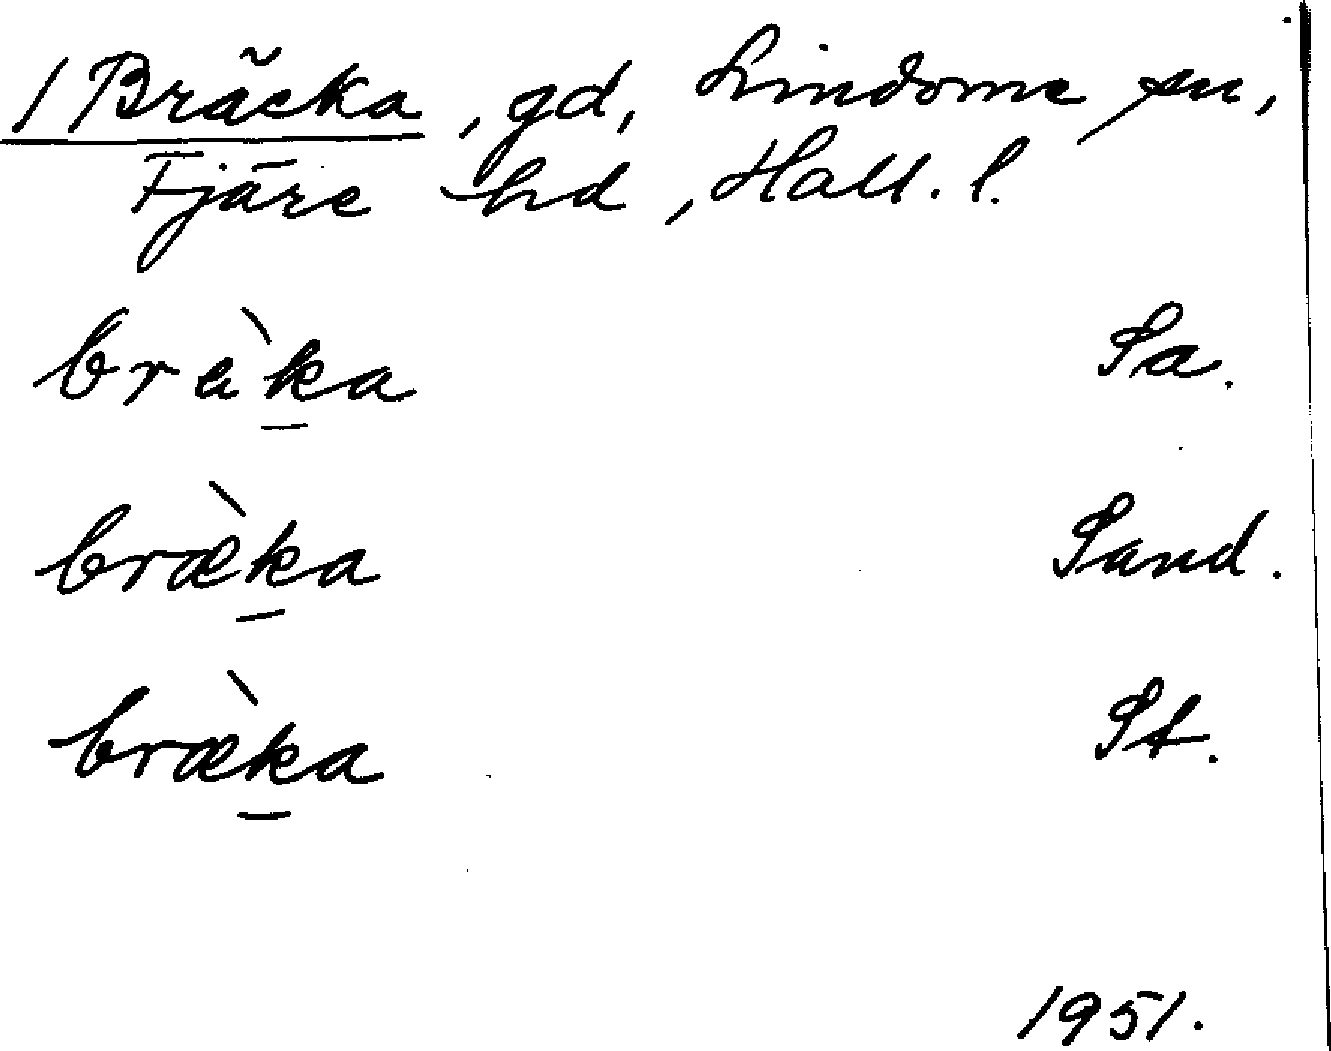 / Bräcka, gd, Lindome sn,
Fjäre hd, Hall. l.
brὰk̲a Sa.
bræ̀k̲a Sand.
bræ̀k̲a St.
1951.